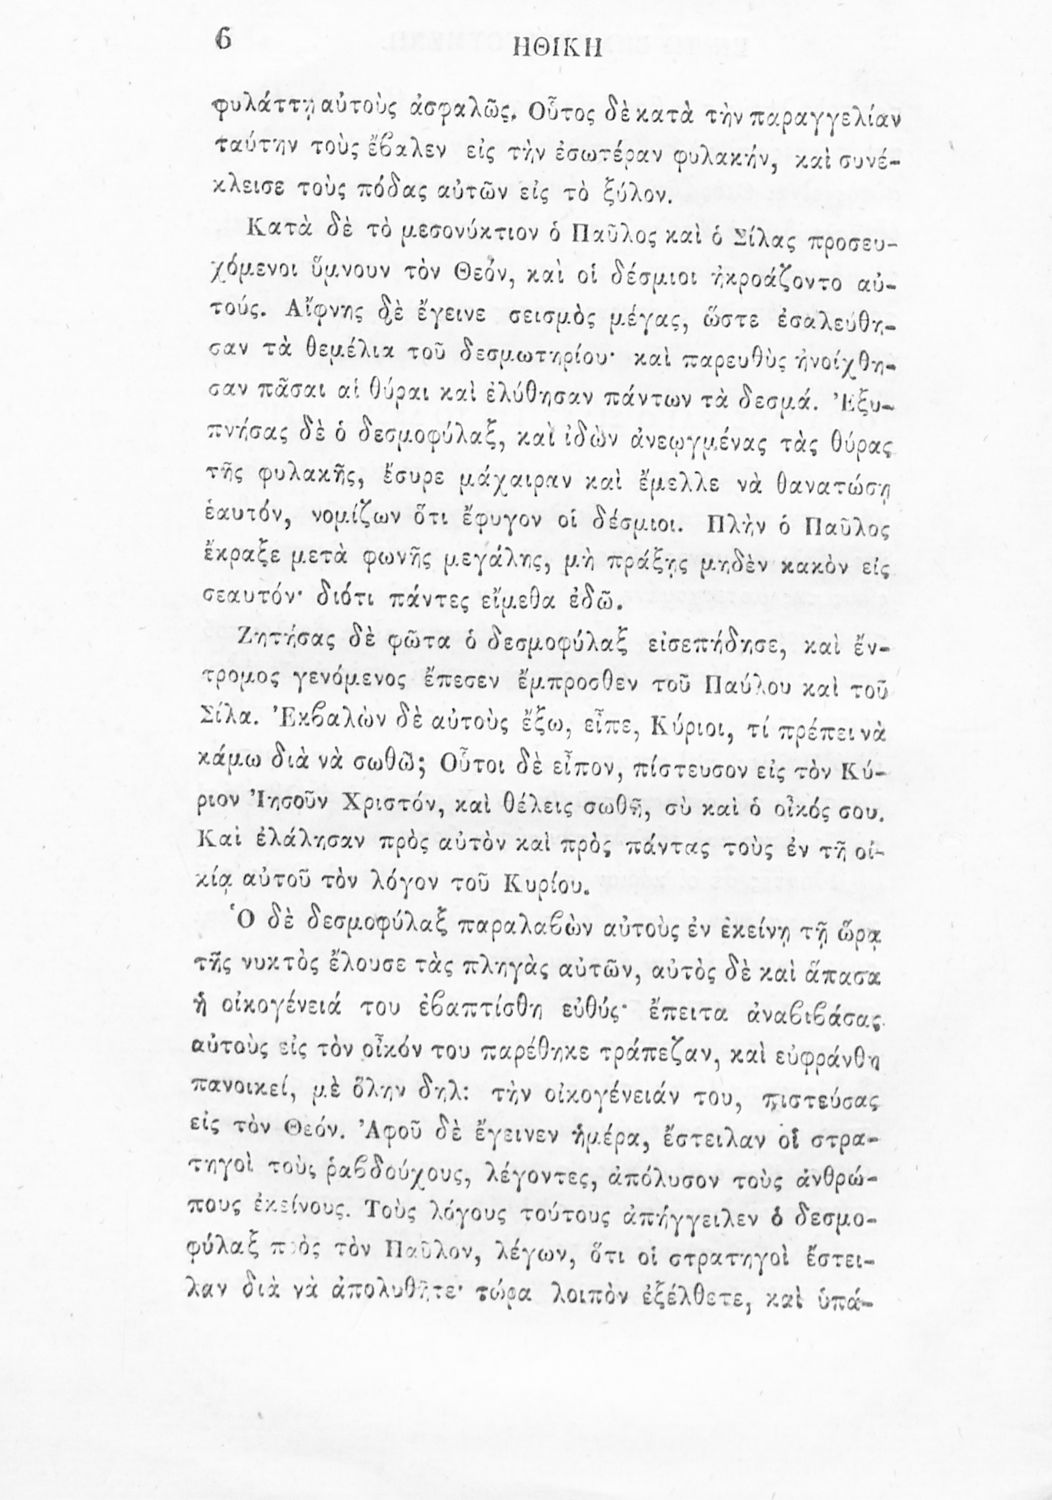 6
ΗΘΙΚΗ
φυλάττῃ αὐτοὺς ἀσφαλῶς. Οὗτος δὲ κατὰ τὴν παραγγελίαν
ταύτην τοὺς ἔβαλεν εἰς τὴν ἐσωτέραν φυλακήν, καὶ συνέ-
κλεισε τοὺς πόδας αὐτῶν εἰς τὸ ξύλον.
Κατὰ δὲ τὸ μεσονύκτιον ὁ Παῦλος καὶ ὁ Σίλας προσευ-
χόμενοι ὕμνουν τὸν Θεόν, καὶ οἱ δέσμιοι ἠκροάζοντο αὐ-
τούς. Αἴφνης δὲ ἔγεινε σεισμὸς μέγας, ὥστε ἐσαλεύθη-
σαν τὰ θεμέλια τοῦ δεσμωτηρίου· καὶ παρευθὺς ἠνοίχθη-
σαν πᾶσαι αἱ θύραι καὶ ἐλύθησαν πάντων τὰ δεσμά. Ἐξυ-
πνήσας δὲ ὁ δεσμοφύλαξ, καὶ ἰδὼν ἀνεῳγμένας τὰς θύρας
τῆς φυλακῆς, ἔσυρε μάχαιραν καὶ ἔμελλε νὰ θανατώσῃ
ἑαυτόν, νομίζων ὅτι ἔφυγον οἱ δέσμιοι. Πλὴν ὁ Παῦλος
ἔκραξε μετὰ φωνῆς μεγάλης, μὴ πράξῃς μηδὲν κακὸν εἰς
σεαυτόν· διότι πάντες εἴμεθα ἐδῶ.
Ζητήσας δὲ φῶτα ὁ δεσμοφύλαξ εἰσεπήδησε, καὶ ἔν-
τρομος γενόμενος ἔπεσεν ἔμπροσθεν τοῦ Παύλου καὶ τοῦ
Σίλα. Ἐκβαλὼν δὲ αὐτοὺς ἔξω, εἶπε, Κύριοι, τί πρέπει νὰ
κάμω διὰ νὰ σωθῶ; Οὗτοι δὲ εἶπον, πίστευσον εἰς τὸν Κύ-
ριον Ἰησοῦν Χριστόν, καὶ θέλεις σωθῆ, σὺ καὶ ὁ οἶκός σου.
Καὶ ἐλάλησαν πρὸς αὐτὸν καὶ πρὸς πάντας τοὺς ἐν τῇ οἰ-
κίᾳ αὐτοῦ τὸν λόγον τοῦ Κυρίου.
Ὁ δὲ δεσμοφύλαξ παραλαβὼν αὐτοὺς ἐν ἐκείνῃ τῇ ὥρᾳ
τῆς νυκτὸς ἔλουσε τὰς πληγὰς αὐτῶν, αὐτὸς δὲ καὶ ἅπασα
ἡ οἰκογένειά του ἐβαπτίσθη εὐθύς· ἔπειτα ἀναβιβάσας
αὐτοὺς εἰς τὸν οἶκόν του παρέθηκε τράπεζαν, καὶ εὐφράνθη
πανοικεί, μὲ ὅλην δηλ: τὴν οἰκογένειάν του, πιστεύσας
εἰς τὸν Θεόν. Ἀφοῦ δὲ ἔγεινεν ἡμέρα, ἔστειλαν οἱ στρα-
τηγοὶ τοὺς ῥαβδούχους, λέγοντες, ἀπόλυσον τοὺς ἀνθρώ-
πους ἐκείνους. Τοὺς λόγους τούτους ἀπήγγειλεν ὁ δεσμο-
φύλαξ πρὸς τὸν Παῦλον, λέγων, ὅτι οἱ στρατηγοὶ ἔστει-
λαν διὰ νὰ ἀπολυθῆτε· τώρα λοιπὸν ἐξέλθετε, καὶ ὑπά-